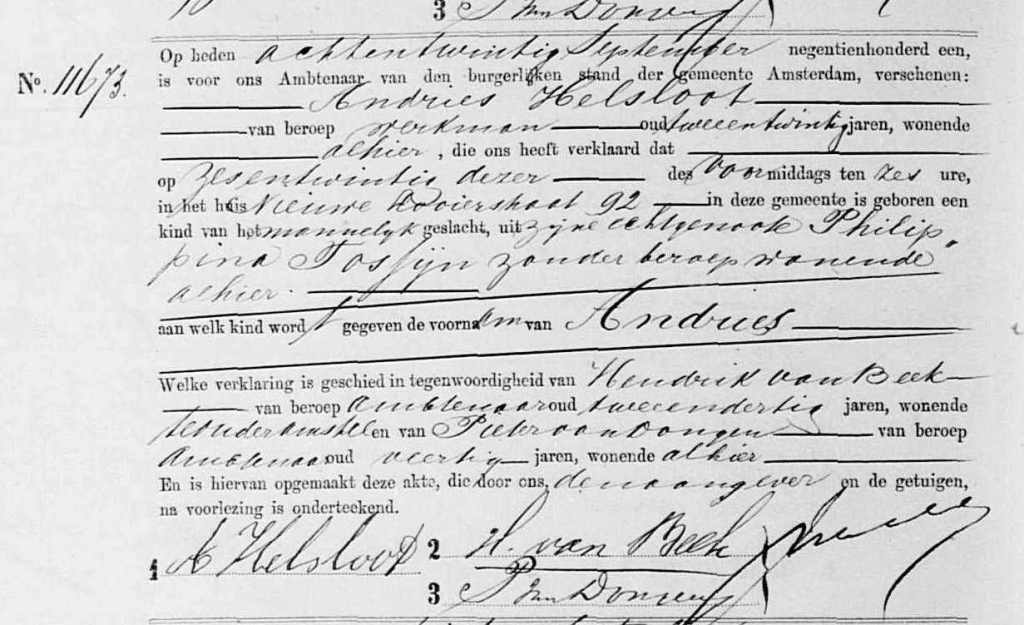 3 P van Dongen
No. 11673.
Op heden achtentwintig September negentienhonderd een,
is voor ons Ambtenaar van den burgerlijken stand der gemeente Amsterdam, verschenen:
Andries Helsloot
van beroep werkman oud tweeentwintig jaren, wonende
alhier, die ons heeft verklaard dat
op zesentwintig dezer des voormiddags ten zes ure,
in het huis Nieuwe Looierstraat 92 in deze gemeente is geboren een
kind van het mannelijk geslacht, uit zijne echtgenoote Philip„
pina Tossijn zonder beroep wonende
alhier.
aan welk kind wordt gegeven de voornaam van Andries
Welke verklaring is geschied in tegenwoordigheid van Hendrik van Beek
van beroep Ambtenaar oud tweeendertig jaren, wonende
te Ouderamstel en van Pieter van Dongen van beroep
Ambtenaar oud veertig jaren, wonende alhier
En is hiervan opgemaakt deze akte, die door ons, den aangever en de getuigen,
na voorlezing is onderteekend.
1 A Helsloot 2 H. van Beek
3 P van Dongen